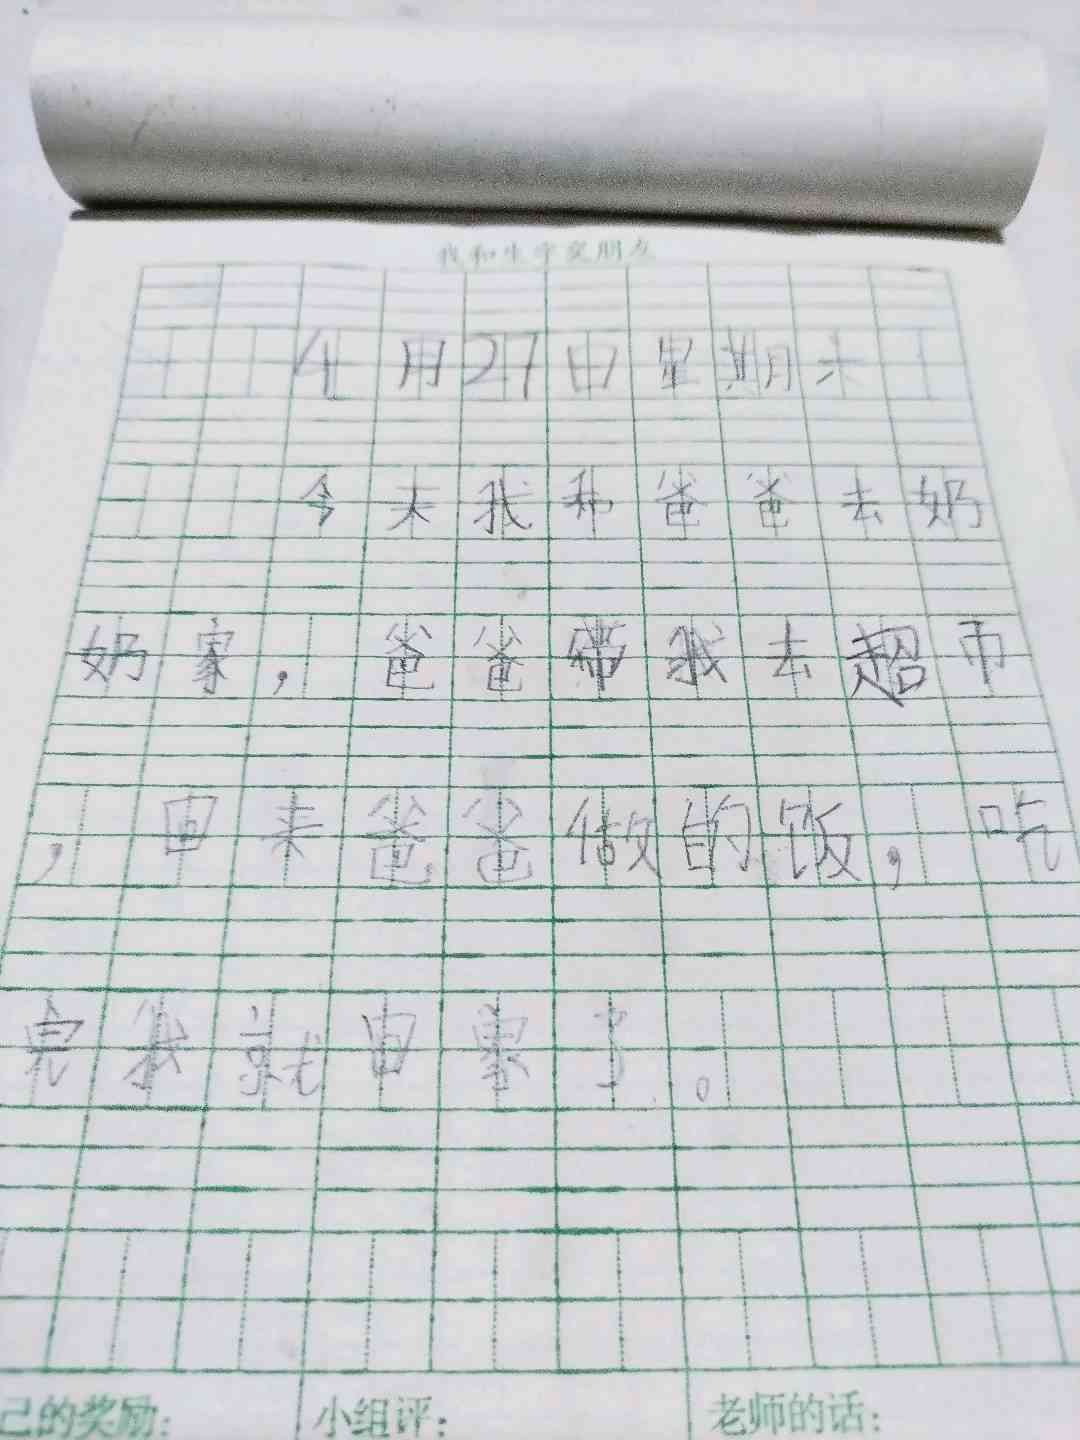 我和生字交朋友
4月27日星期六
今天我和爸爸去奶
奶家，爸爸带我去超市
，回来爸爸做的饭，吃
完我就回家了。
己的奖励：
小组评：
老师的话：